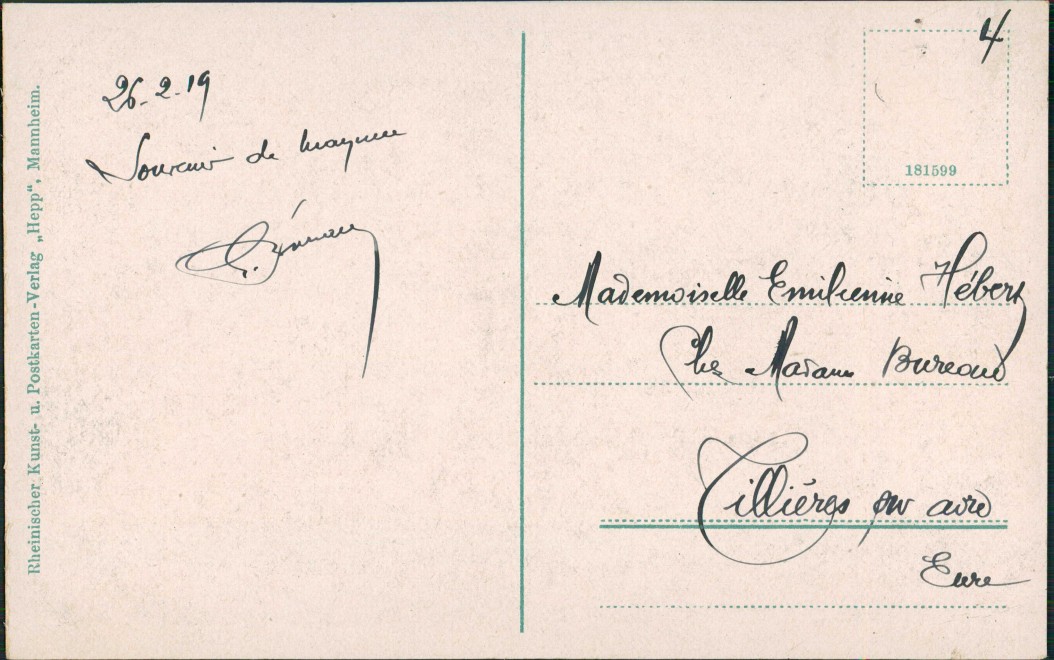 Rheinischer Kunst- u. Postkarten-Verlag „Hepp", Mannheim.
26-2-19
Souvenir de
4
181599
Mademoiselle Emilienne Hébert
Chez Madame Bureaud
Tillières sur avre
Eure